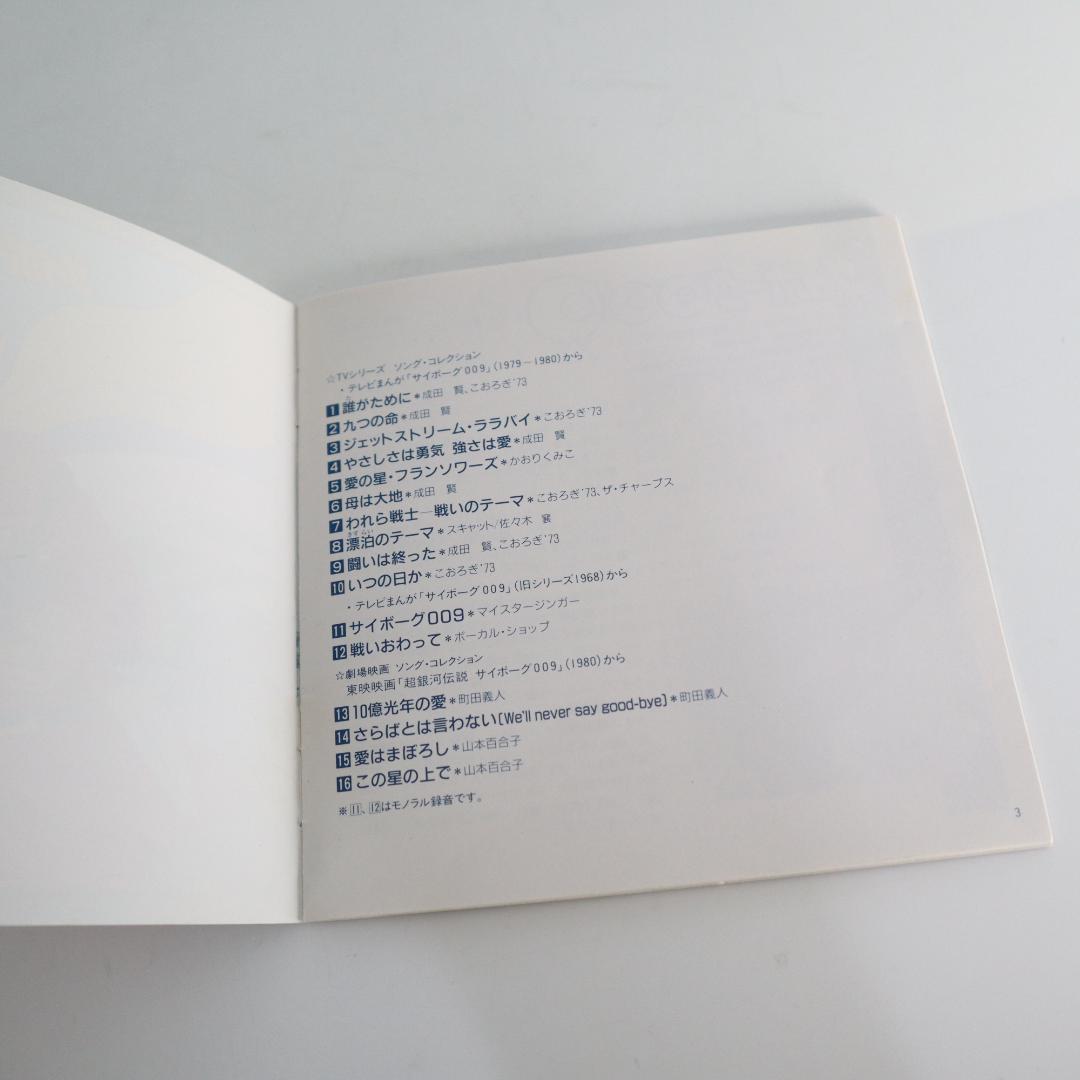 ☆TVシリーズ ソング・コレクション
・テレビまんが「サイボーグ009」(1979−1980)から
1 誰がために*成田 賢、こおろぎ'73
2 九つの命*成田 賢
3 ジェットストリーム・ララバイ*こおろぎ'73
4 やさしさは勇気 強さは愛*成田 賢
5 愛の星・フランソワーズ*かおりくみこ
6 母は大地*成田 賢
7 われら戦士―戦いのテーマ*こおろぎ'73、ザ・チャープス
8 漂泊のテーマ*スキャット/佐々木 襄
9 闘いは終った*成田 賢、こおろぎ'73
10 いつの日か*こおろぎ'73
・テレビまんが「サイボーグ009」(旧シリーズ1968)から
11 サイボーグ009*マイスタージンガー
12 戦いおわって*ボーカル・ショップ
☆劇場映画 ソング・コレクション
東映映画「超銀河伝説 サイボーグ009」(1980)から
13 10億光年の愛*町田義人
14 さらばとは言わない〔We'll never say good-bye〕*町田義人
15 愛はまぼろし*山本百合子
16 この星の上で*山本百合子
※11、12はモノラル録音です。
3